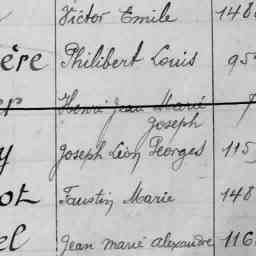 Victor Emile 148
ère Philibert Louis 95
er Henri Jean Marie
Joseph
y Joseph Léon Georges 115
ot Faustin Marie 148
el Jean marie alexandre 116